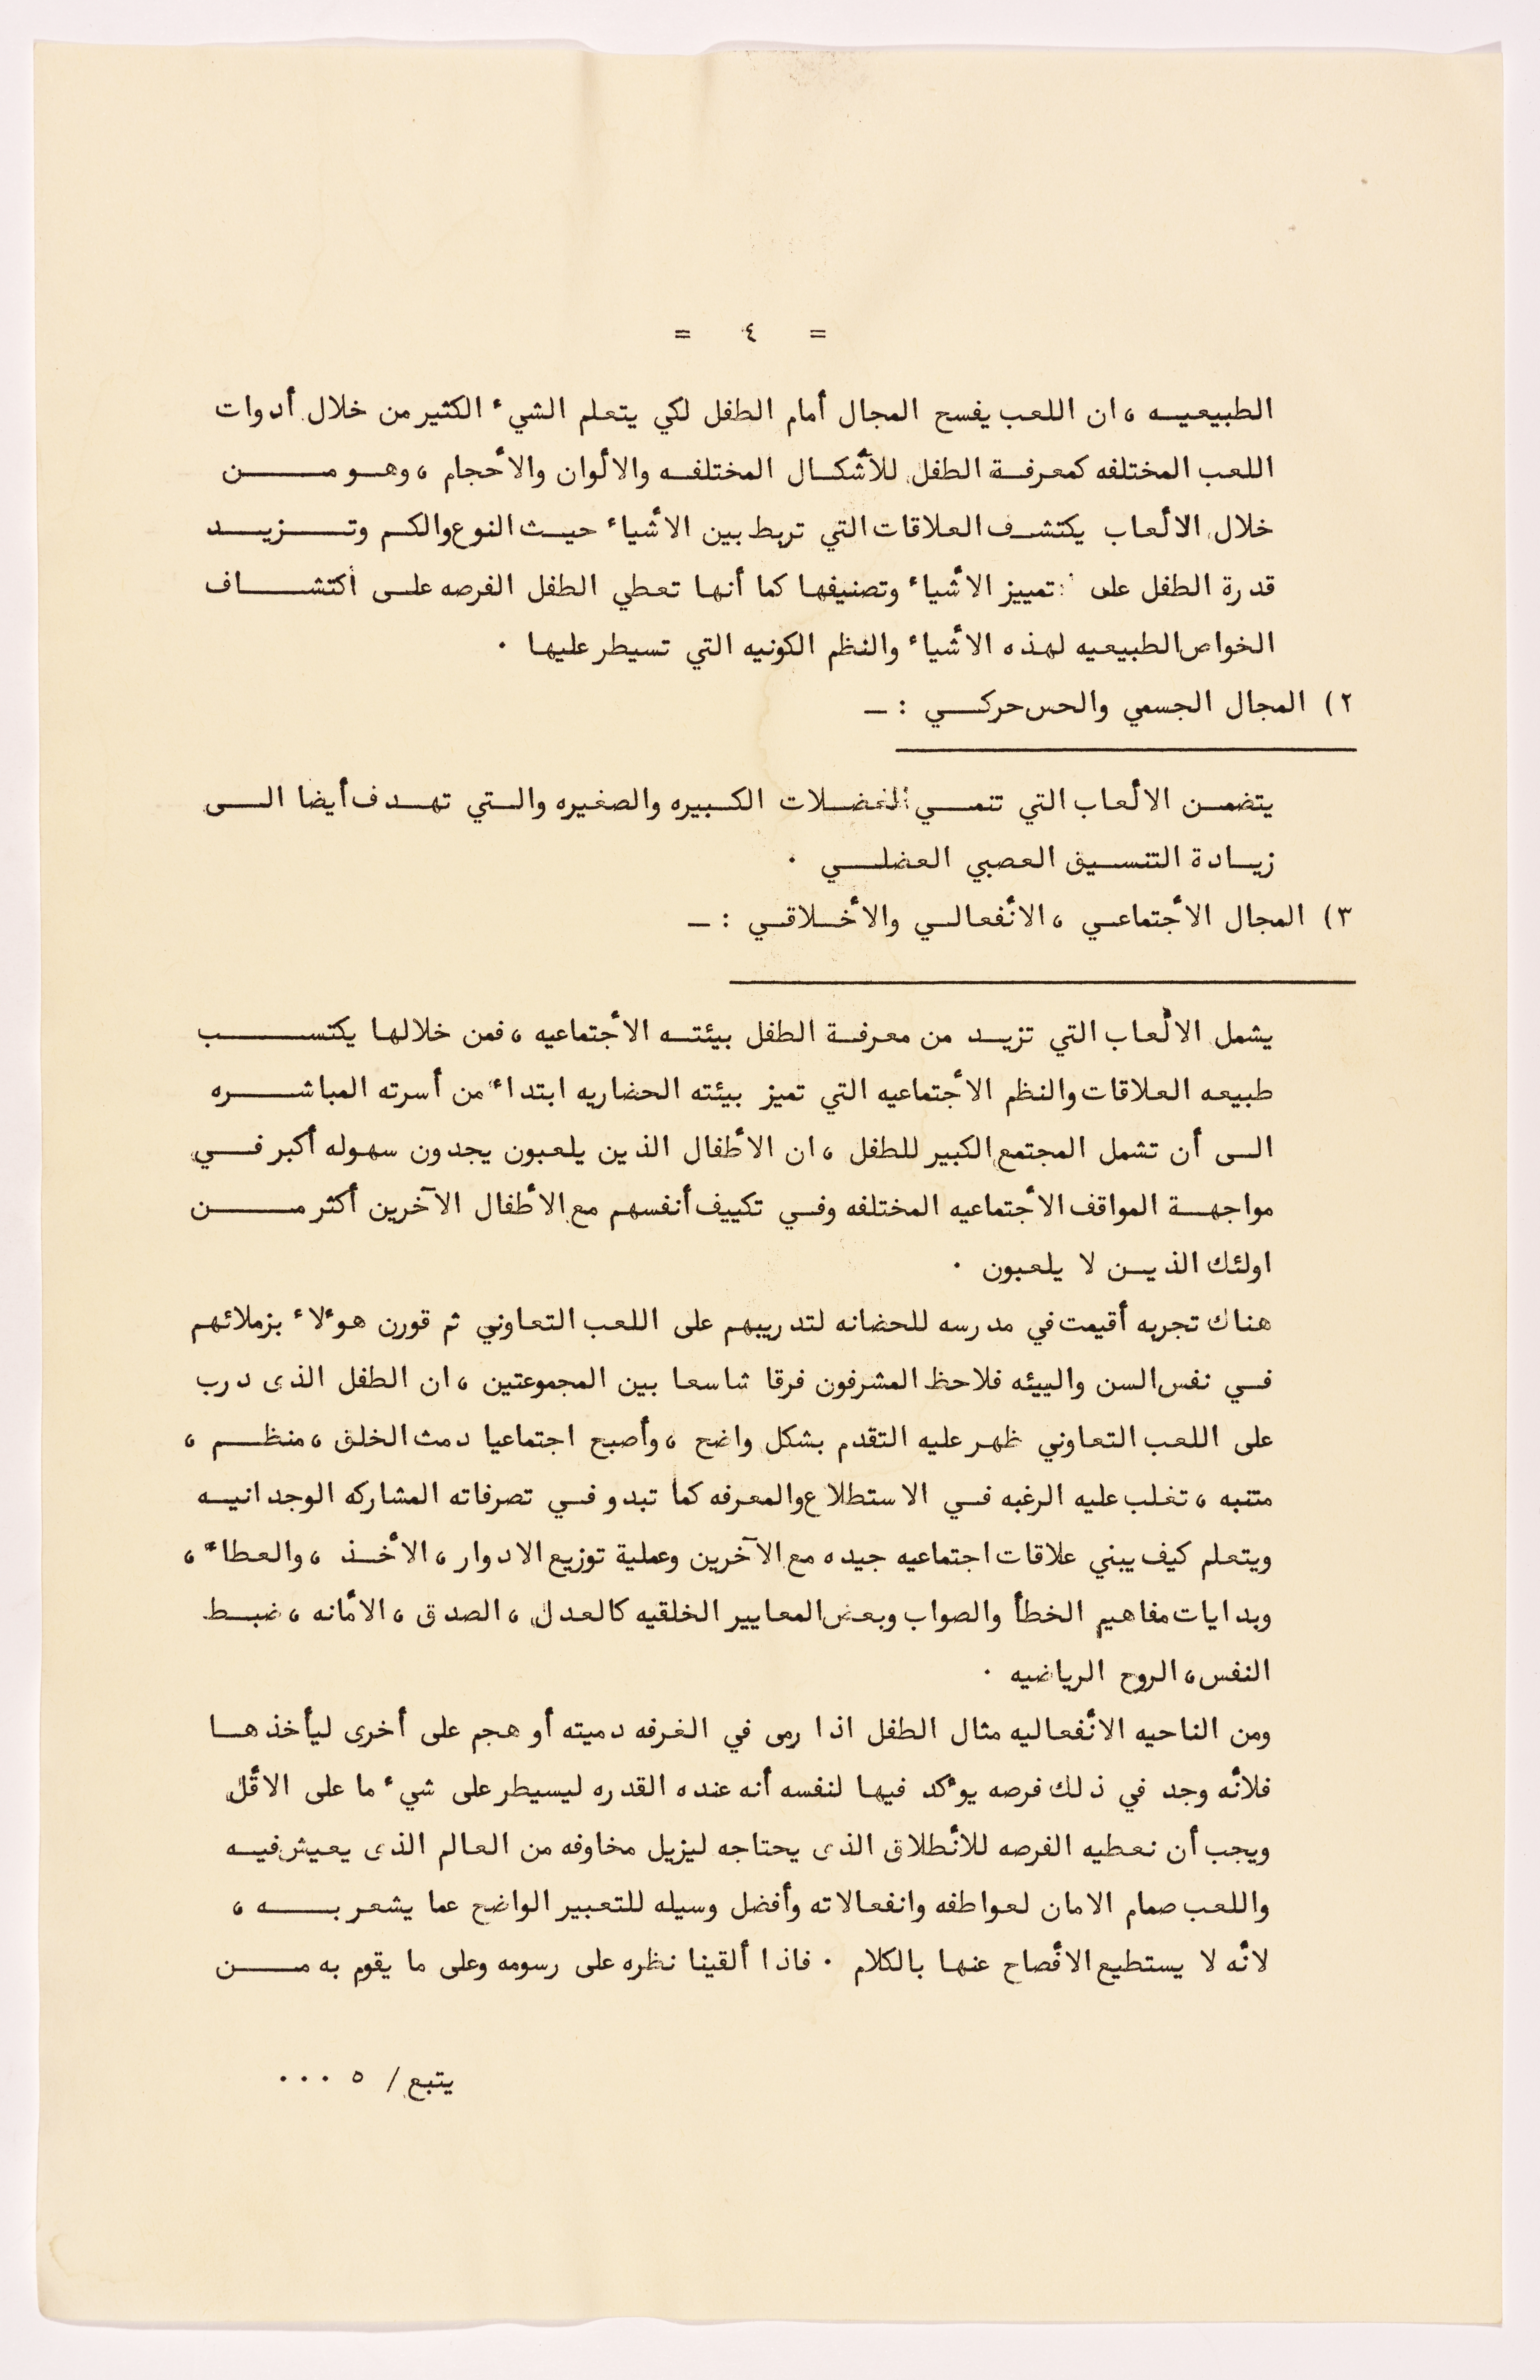 = ٤ =
الطبيعيه ، ان اللعب يفسح المجال أمام الطفل لكي يتعلم الشيء الكثير من خلال أدوات
اللعب المختلفه كمعرفة الطفل للأشكال المختلفه والالوان والأحجام ، وهو من
خلال الالعاب يكتشف العلاقات التي تربط بين الأشياء حيث النوع والكم وتزيد
قدرة الطفل على تمييز الأشياء وتصنيفها كما أنها تعطي الطفل الفرصه على أكتشاف
الخواص الطبيعيه لهذه الأشياء والنظم الكونيه التي تسيطر عليها .
٢) المجال الجسمي والحس حركي : ـ
يتضمن الألعاب التي تنمي العضلات الكبيره والصغيره والتي تهدف أيضا الى
زيادة التنسيق العصبي العضلي .
٣) المجال الأجتماعي ، الأنفعالي والأخلاقي : ـ
يشمل الألعاب التي تزيد من معرفة الطفل بيئته الأجتماعيه ، فمن خلالها يكتسب
طبيعه العلاقات والنظم الأجتماعيه التي تميز بيئته الحضاريه ابتداء من أسرته المباشره
الى أن تشمل المجتمع الكبير للطفل ، ان الأطفال الذين يلعبون يجدون سهوله أكبر في
مواجهة المواقف الأجتماعيه المختلفه وفي تكييف أنفسهم مع الأطفال الآخرين أكثر من
اولئك الذين لا يلعبون .
هناك تجربه أقيمت في مدرسه للحضانه لتدريبهم على اللعب التعاوني ثم قورن هوءلاء بزملائهم
في نفس السن والبيئه فلاحظ المشرفون فرقا شاسعا بين المجموعتين ، ان الطفل الذى درب
على اللعب التعاوني ظهر عليه التقدم بشكل واضح ، وأصبح اجتماعيا دمث الخلق ، منظم ،
متنبه ، تغلب عليه الرغبه في الاستطلاع والمعرفه كما تبدو في تصرفاته المشاركه الوجدانيه
ويتعلم كيف يبني علاقات اجتماعيه جيده مع الآخرين وعملية توزيع الادوار ، الأخذ ، والعطاء ،
وبدايات مفاهيم الخطأ والصواب وبعض المعايير الخلقيه كالعدل ، الصدق ، الأمانه ، ضبط
النفس ، الروح الرياضيه .
ومن الناحيه الأنفعاليه مثال الطفل اذا رمى في الغرفه دميته أو هجم على أخرى ليأخذها
فلأنه وجد في ذلك فرصه يوءكد فيها لنفسه أنه عنده القدره ليسيطر على شيء ما على الأقل
ويجب أن نعطيه الفرصه للأنطلاق الذى يحتاجه ليزيل مخاوفه من العالم الذى يعيش فيه
واللعب صمام الامان لعواطفه وانفعالاته وأفضل وسيله للتعبير الواضح عما يشعر به ،
لأنه لا يستطيع الأفصاح عنها بالكلام . فاذا ألقينا نظره على رسومه وعلى ما يقوم به من
يتبع / ٥ ...